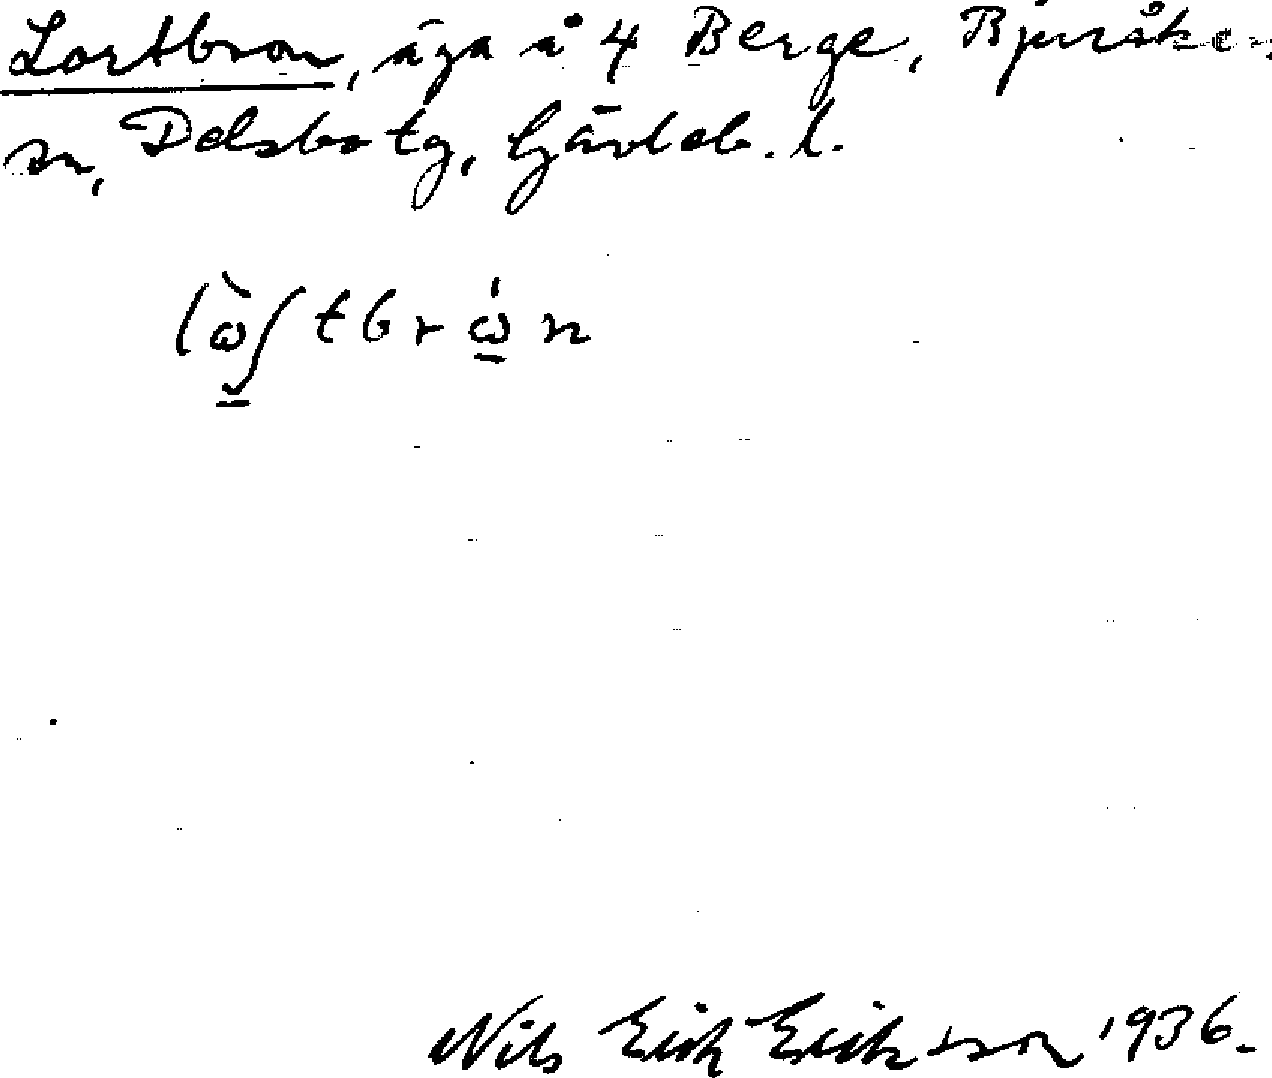 Lortbron, äga å 4 Berge, Bjuråker
sn, Delsbo tg, Gävleb. l.
Nils Erik Eriksson 1936.